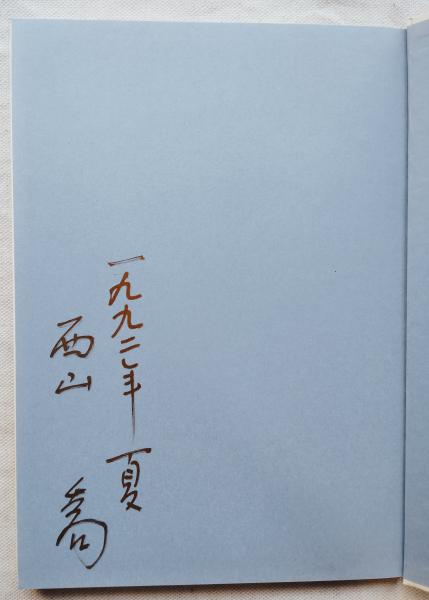 一九九二年 夏
西山 喬